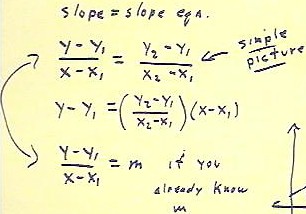 slope = slope eqn.
y-y₁/x-x₁ = y₂-y₁/x₂-x₁ ← simple picture
y-y₁ = (y₂-y₁/x₂-x₁)(x-x₁)
y-y₁/x-x₁ = m if you
already know
m